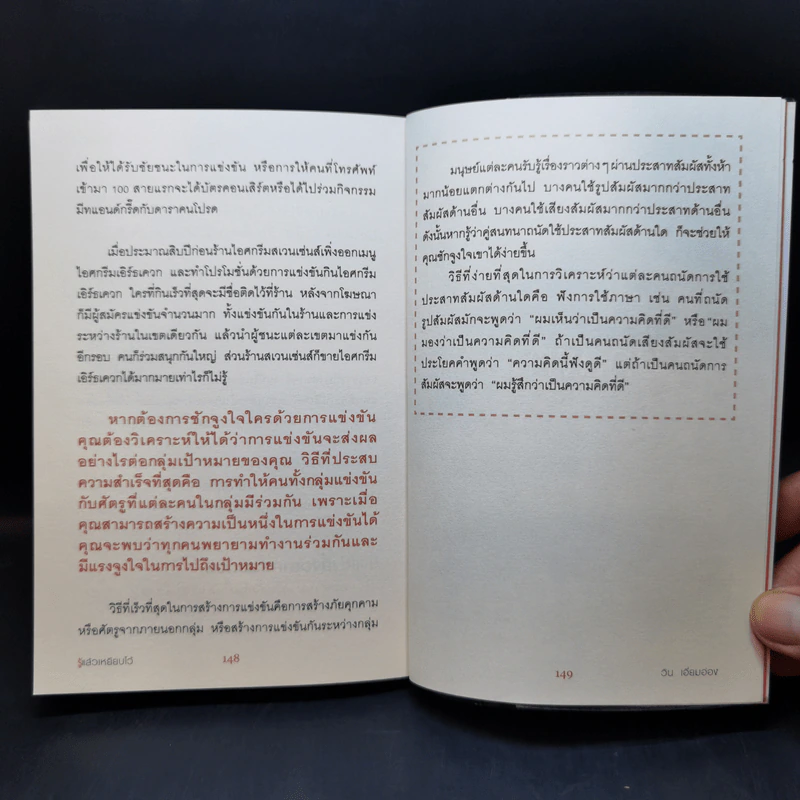 เพื่อให้ได้รับชัยชนะในการแข่งขัน หรือการให้คนที่โทรศัพท์
เข้ามา 100 สายแรกจะได้บัตรคอนเสิร์ตหรือได้ไปร่วมกิจกรรม
มีทแอนด์กรี๊ดกับดาราคนโปรด
เมื่อประมาณสิบปีก่อนร้านไอศกรีมสเวนเซ่นส์เพิ่งออกเมนู
ไอศกรีมเอิร์ธเควก และทำโปรโมชั่นด้วยการแข่งขันกินไอศกรีม
เอิร์ธเควก ใครที่กินเร็วที่สุดจะมีชื่อติดไว้ที่ร้าน หลังจากโฆษณา
ก็มีผู้สมัครแข่งขันจำนวนมาก ทั้งแข่งขันกันในร้านและการแข่ง
ระหว่างร้านในเขตเดียวกัน แล้วนำผู้ชนะแต่ละเขตมาแข่งกัน
อีกรอบ คนก็ร่วมสนุกกันใหญ่ ส่วนร้านสเวนเซ่นส์ก็ขายไอศกรีม
เอิร์ธเควกได้มากมายเท่าไรก็ไม่รู้
หากต้องการชักจูงใจใครด้วยการแข่งขัน
คุณต้องวิเคราะห์ให้ได้ว่าการแข่งขันจะส่งผล
อย่างไรต่อกลุ่มเป้าหมายของคุณ วิธีที่ประสบ
ความสำเร็จที่สุดคือ การทำให้คนทั้งกลุ่มแข่งขัน
กับศัตรูที่แต่ละคนในกลุ่มมีร่วมกัน เพราะเมื่อ
คุณสามารถสร้างความเป็นหนึ่งในการแข่งขันได้
คุณจะพบว่าทุกคนพยายามทำงานร่วมกันและ
มีแรงจูงใจในการไปถึงเป้าหมาย
วิธีที่เร็วที่สุดในการสร้างการแข่งขันคือการสร้างภัยคุกคาม
หรือศัตรูจากภายนอกกลุ่ม หรือสร้างการแข่งขันกันระหว่างกลุ่ม
รู้แล้วเหยียบไว้ 148
มนุษย์แต่ละคนรับรู้เรื่องราวต่างๆ ผ่านประสาทสัมผัสทั้งห้า
มากน้อยแตกต่างกันไป บางคนใช้รูปสัมผัสมากกว่าประสาท
สัมผัสด้านอื่น บางคนใช้เสียงสัมผัสมากกว่าประสาทด้านอื่น
ดังนั้นหากรู้ว่าคู่สนทนาถนัดใช้ประสาทสัมผัสด้านใด ก็จะช่วยให้
คุณชักจูงใจเขาได้ง่ายขึ้น
วิธีที่ง่ายที่สุดในการวิเคราะห์ว่าแต่ละคนถนัดการใช้
ประสาทสัมผัสด้านใดคือ ฟังการใช้ภาษา เช่น คนที่ถนัด
รูปสัมผัสมักจะพูดว่า "ผมเห็นว่าเป็นความคิดที่ดี" หรือ "ผม
มองว่าเป็นความคิดที่ดี" ถ้าเป็นคนถนัดเสียงสัมผัสจะใช้
ประโยคคำพูดว่า "ความคิดนี้ฟังดูดี" แต่ถ้าเป็นคนถนัดการ
สัมผัสจะพูดว่า "ผมรู้สึกว่าเป็นความคิดที่ดี"
149 วิน เอี่ยมอ่อง